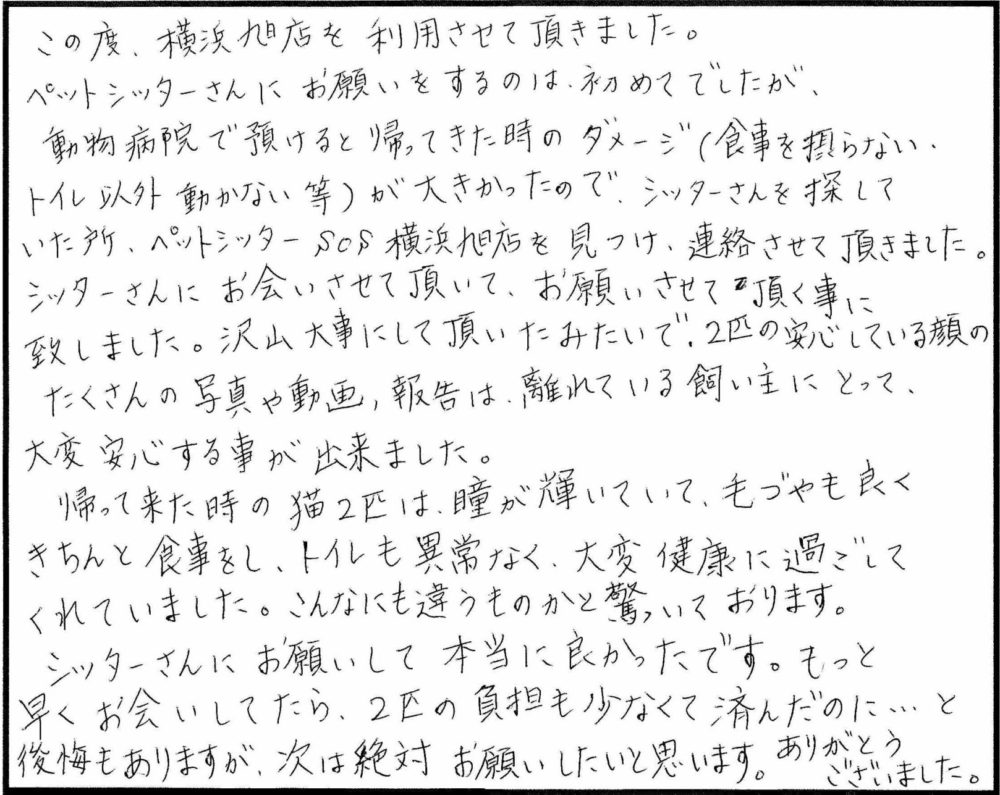 この度、横浜旭店を利用させて頂きました。
ペットシッターさんにお願いをするのは、初めてでしたが、
動物病院で預けると帰ってきた時のダメージ(食事を摂らない、
トイレ以外動かない等)が大きかったので、シッターさんを探して
いた所、ペットシッターSOS横浜旭店を見つけ、連絡させて頂きました。
シッターさんにお会いさせて頂いて、お願いさせて頂く事に
致しました。沢山大事にして頂いたみたいで、2匹の安心している顔の
たくさんの写真や動画,報告は、離れている飼い主にとって、
大変安心する事が出来ました。
帰って来た時の猫2匹は、瞳が輝いていて、毛づやも良く
きちんと食事をし、トイレも異常なく、大変健康に過ごして
くれていました。こんなにも違うものかと驚ついております。
シッターさんにお願いして本当に良かったです。もっと
早くお会いしてたら、2匹の負担も少なくて済んだのに…と
後悔もありますが、次は絶対お願いしたいと思います。ありがとう
ございました。